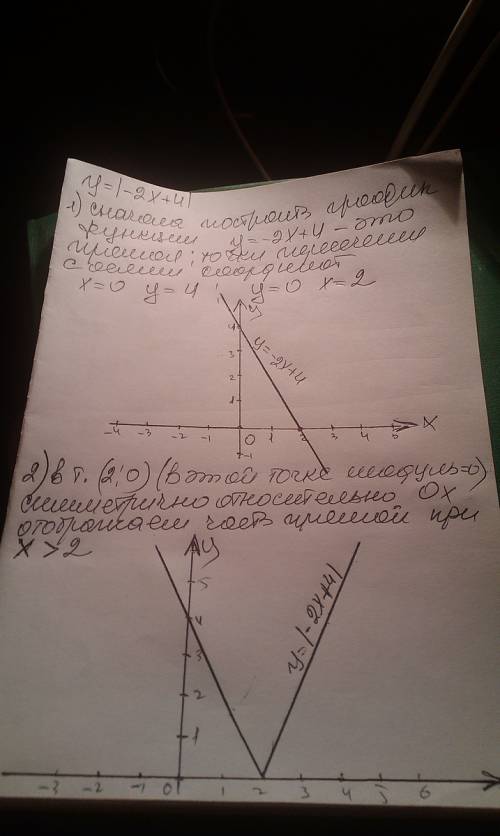 y=|-2x+4|
1) сначала построить график
функции y=-2x+4 - это
прямая; точки пересечения
с осями координат
x=0 y=4 ; y=0 x=2
y
4
3
2
1
y=-2x+4
-4 -3 -2 -1 0 1 2 3 4 5 x
-1
2) в т. (2;0) (в этой точке модуль=0)
симметрично относительно Ox
отображаем часть прямой при
x>2
y
5
4
3
2
1
y=|-2x+4|
-3 -2 -1 0 1 2 3 4 5 6